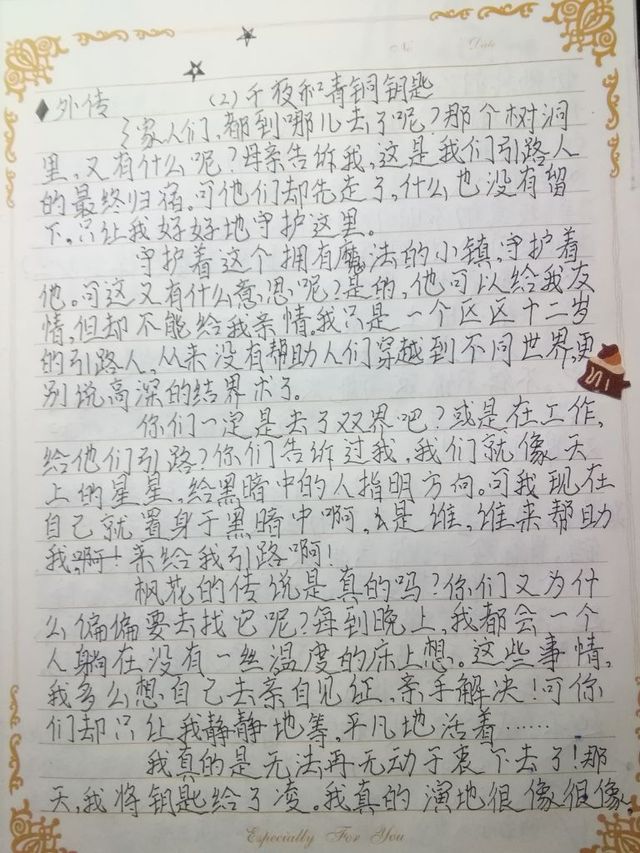 No   Date
◆外传   (2)千夜和青铜钥匙
家人们,都到哪儿去了呢?那个树洞
里,又有什么呢?母亲告诉我,这是我们引路人
的最终归宿。可他们却先走了,什么也没有留
下。只让我好好地守护这里。
守护着这个拥有魔法的小镇,守护着
他。可这又有什么意思呢?是的,他可以给我友
情,但却不能给我亲情。我只是一个区区十二岁
的引路人,从来没有帮助人们穿越到不同世界,更
别说高深的结界术了。
你们一定是去了双界吧?或是在工作,
给他们引路?你们告诉过我,我们就像天
上的星星,给黑暗中的人指明方向。可我现在
自己就置身于黑暗中啊,是谁,谁来帮助
我,啊!来给我引路啊!
枫花的传说是真的吗?你们又为什
么偏偏要去找它呢?每到晚上,我都会一个
人躺在没有一丝温度的床上想。这些事情,
我多么想自己去亲自见证,亲手解决!可你
们却只让我静静地等。平凡地活着……
我真的是无法再无动于衷下去了!那
天,我将钥匙给了凌。我真的演地很像很像,
Especially For You